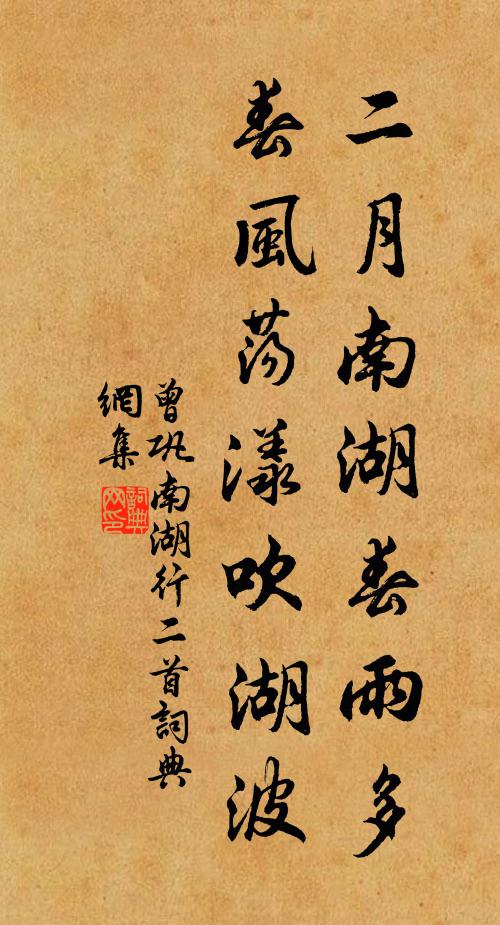 二月南湖春雨多
春風蕩漾吹湖波
曾巩南湖行二首詞典
網集
詞典网印